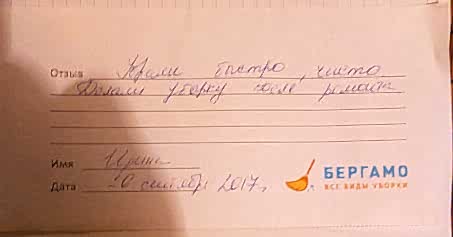 Отзыв быстро, чисто
Делали уборку после ремонта
Имя Ирина
Дата 20 сентября 2017 г.
БЕРГАМО
ВСЕ ВИДЫ УБОРКИ